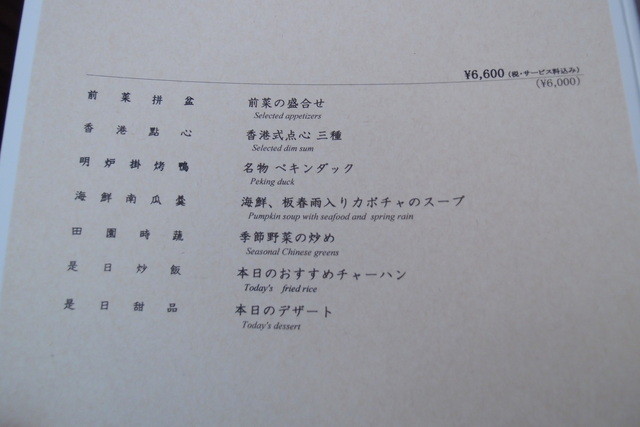 ¥6,600 (税・サービス料込み)
(¥6,000)
前菜拼盆 前菜の盛合せ
Selected appetizers
香港點心 香港式点心 三種
Selected dim sum
明炉掛烤鴨 名物 ペキンダック
Peking duck
海鮮南瓜羹 海鮮、板春雨入りカボチャのスープ
Pumpkin soup with seafood and spring rain
田園時蔬 季節野菜の炒め
Seasonal Chinese greens
是日炒飯 本日のおすすめチャーハン
Today's fried rice
是日甜品 本日のデザート
Today's dessert